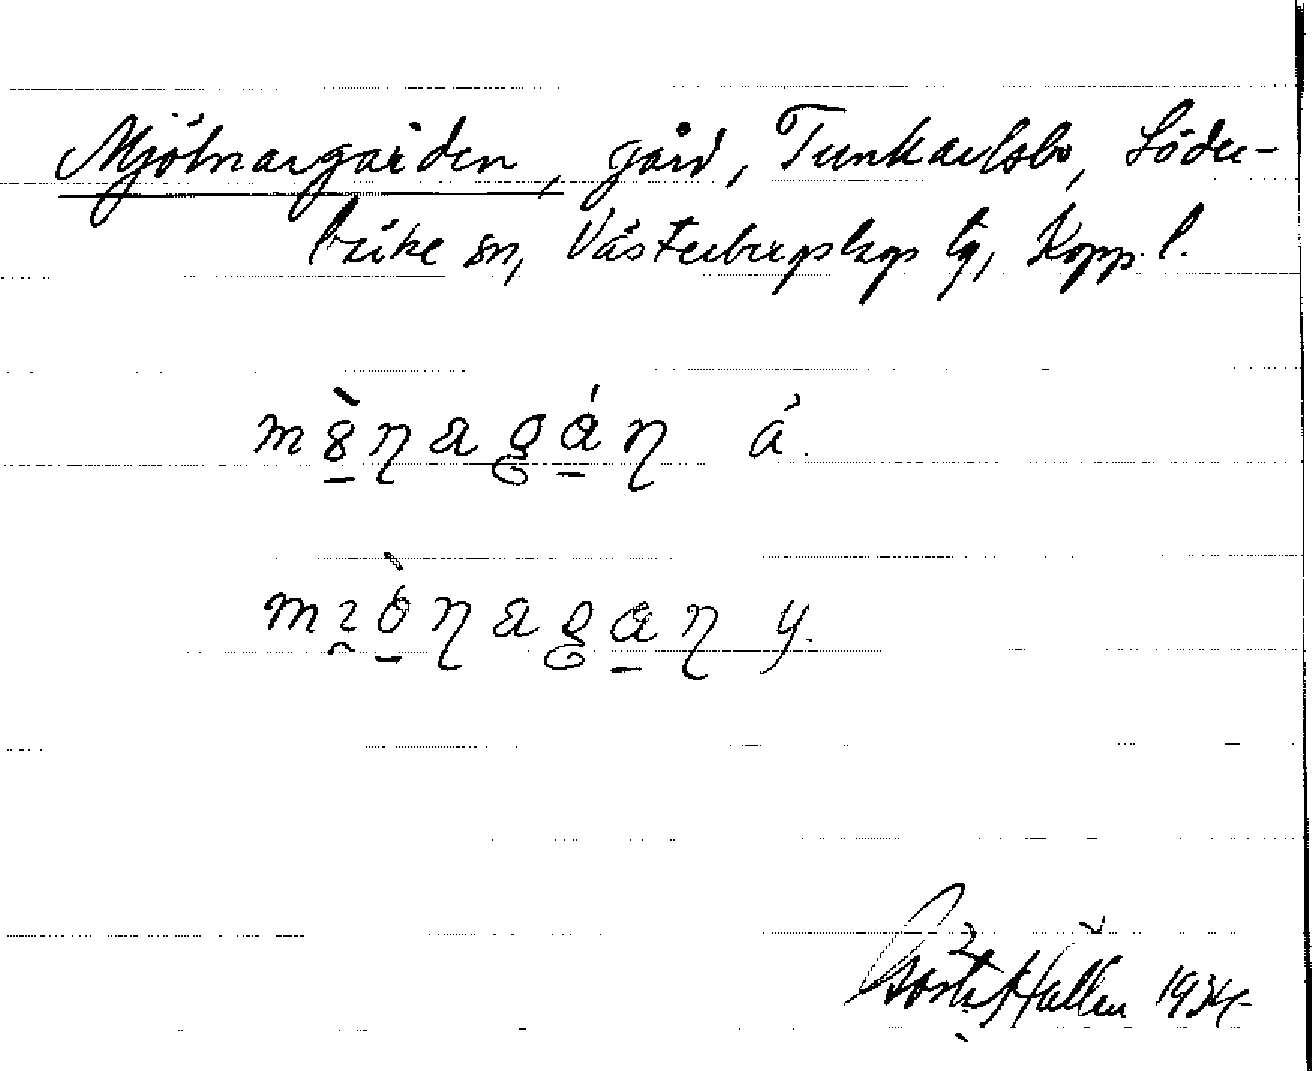 Mjölnargården, gård, Tunkarlsbo, Söder-
bärke sn, Västerbergslags tg, Kopp. l.
m8̠̀ŋagá̠ŋ ä.
mɂ̯ò̠ŋaga̠ŋ y.
Gösta Hallén 1934